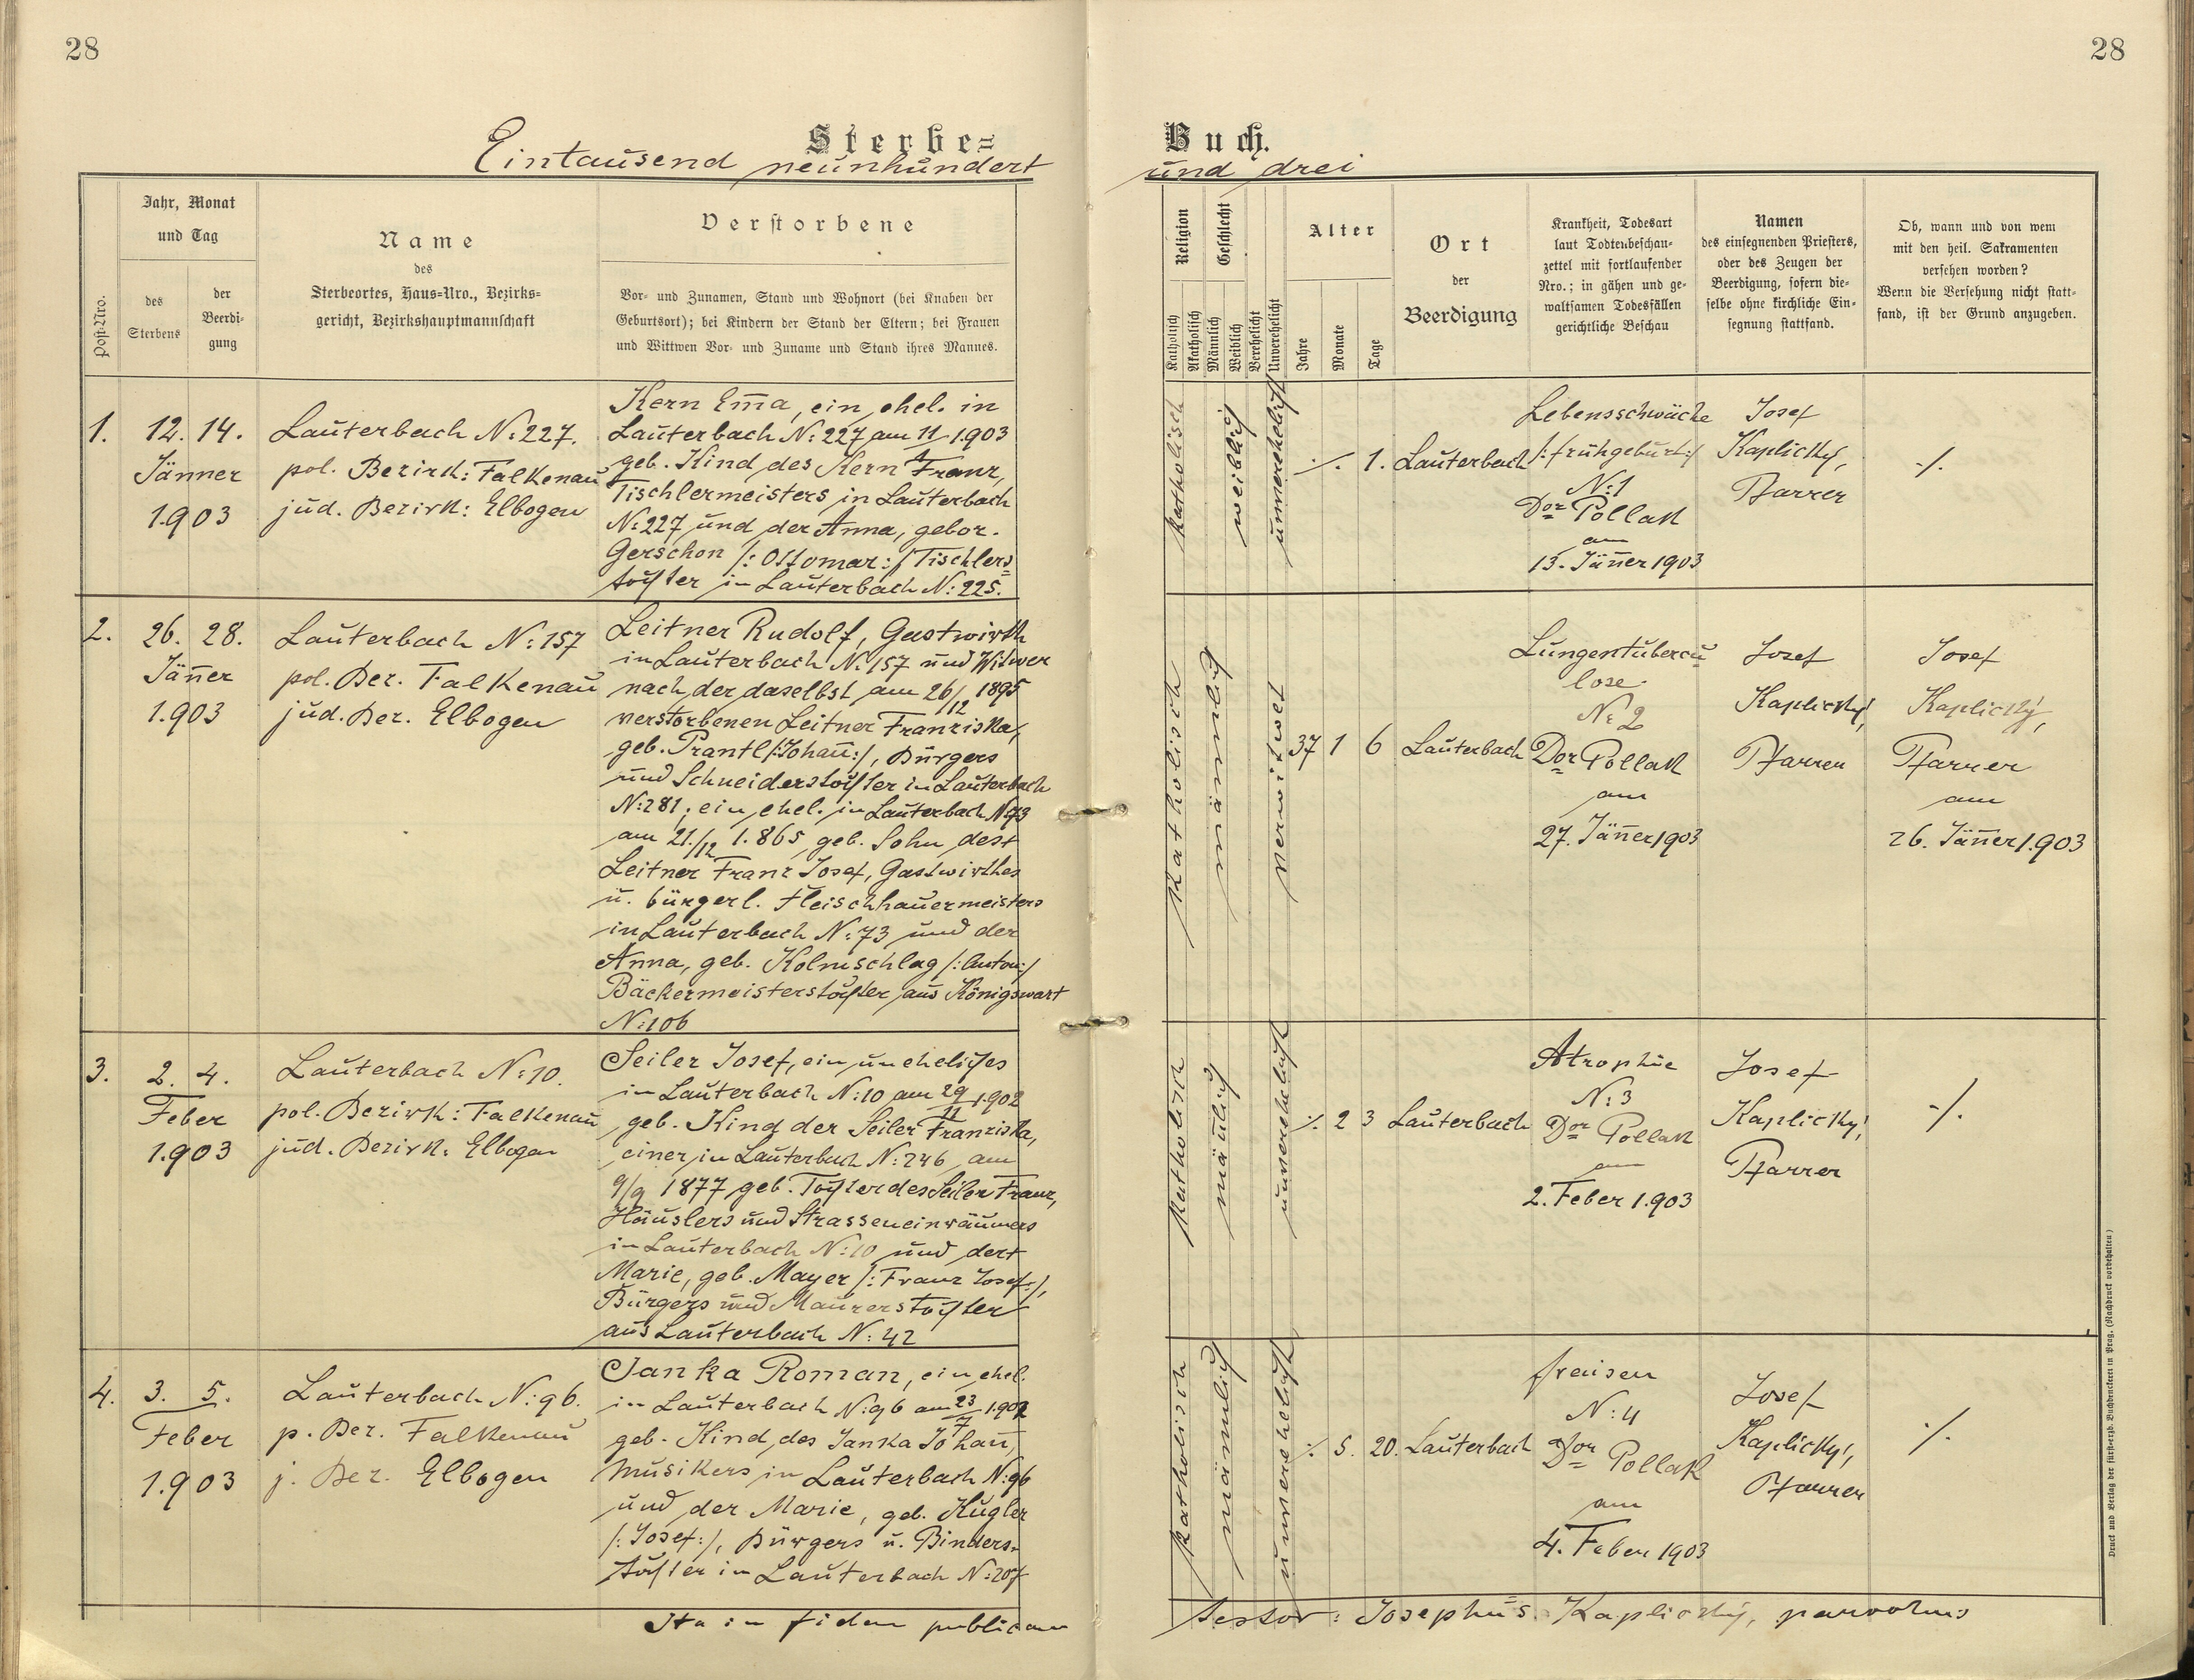 28
28
Sterbe=
Buch.
Eintausend neunhundert
und drei
Post-Nro.
Jahr, Monat
und Tag
des
Sterbens
der
Beerdi-
gung
Name
des
Sterbeortes, Haus-Nro., Bezirks-
gericht, Bezirkshauptmannschaft
Verstorbene
Vor- und Zunamen, Stand und Wohnort (bei Knaben der
Geburtsort); bei Kindern der Stand der Eltern; bei Frauen
und Wittwen Vor- und Zuname und Stand ihres Mannes.
Religion
Katholisch
Akatholisch
Geschlecht
Männlich
Weiblich
Verehelicht
Unverehelicht
Alter
Jahre
Monate
Tage
Ort
der
Beerdigung
Krankheit, Todesart
laut Todtenbeschau-
zettel mit fortlaufender
Nro.; in gähen und ge-
waltsamen Todesfällen
gerichtliche Beschau
Namen
des einsegnenden Priesters,
oder des Zeugen der
Beerdigung, sofern die-
selbe ohne kirchliche Ein-
segnung stattfand.
Ob, wann und von wem
mit den heil. Sakramenten
versehen worden?
Wenn die Versehung nicht statt-
fand, ist der Grund anzugeben.
1.
12. 14.
Jänner
1.903
Lauterbach N:227.
pol. Bezirk: Falkenau
jud. Bezirk: Elbogen
Kern Em̄a, ein ehel. in
Lauterbach N:227 am 11/1 1.903
geb. Kind des Kern Franz,
Tischlermeisters in Lauterbach
N:227 und der Anna, gebor.
Gerschon /: Ottomar:/ Tischlers=
tochter in Lauterbach N:225.
katholisch
weiblich
unverehelicht
·/. 1.
Lauterbach
Lebensschwäche
/:frühgeburt:/
N:1
Dor Pollak
am
13. Jän̄er 1903
Josef
Kaplický,
Pfarrer
·/.
2.
26. 28.
Jän̄er
1.903
Lauterbach N:157
pol. Bez. Falkenau
jud. Bez. Elbogen
Leitner Rudolf, Gastwirth
in Lauterbach N:157 und Witwer
nach der daselbst am 26/12 1895
verstorbenen Leitner Franziska,
geb. Prantl /:Johan̄:/, Bürgers
und Schneiderstochter in Lauterbach
N:281; ein ehel. in Lauterbach N:73
am 21./12 1.865 geb. Sohn des
Leitner Franz Josef, Gastwirthes
u. bürgerl. Fleischhauermeisters
in Lauterbach N:73 und der
Anna, geb. Kolmschlag /:Anton:/
Bäckermeisterstochter aus Königswart
N:106
katholisch
männlich
verwitwet
37 1 6
Lauterbach
Lungentubercu
lose
N: 2
Dor Pollak
am
27. Jän̄er 1903
Josef
Kaplický,
Pfarrer
Josef
Kaplický,
Pfarrer
am
26. Jän̄er 1.903
3.
2. 4.
Feber
1.903
Lauterbach N:10.
pol. Bezirk: Falkenau
jud. Bezirk: Elbogen
Seiler Josef, ein uneheliches
in Lauterbach N:10 am 29/11 1.902
geb. Kind der Seiler Franziska,
einer in Lauterbach N:246 am
9/9 1877 geb. Tochter des Seiler Franz,
Häuslers und Strasseneinräumers
in Lauterbach N:10 und der
Marie, geb. Mayer /:Franz Josef:/,
Bürgers und Maurerstochter
aus Lauterbach N:42
katholisch
män̄lich
unverehelicht
·/. 2 3
Lauterbach
Atrophie
N:3
Dor Pollak
am
2. Feber 1.903
Josef
Kaplický,
Pfarrer
·/.
4.
3. 5.
Feber
1.903
Lauterbach N:96.
p. Bez. Falkenau
j. Bez. Elbogen
Janka Roman, ein ehel.
in Lauterbach N:96 am 23/7 1.902
geb. Kind des Janka Johan̄,
Musikers in Lauterbach N:96
und der Marie, geb. Kugler
/:Josef:/, Bürgers u. Binders-
tochter in Lauterbach N:207
katholisch
männlich
unverehelicht
·/. 5. 20.
Lauterbach
fraisen
N:4
Dor Pollak
am
4. Feber 1903
Josef
Kaplický,
Pfarrer
·/.
Ita in fidem publicam
testor: Josephus Kaplický, parochus
Druck und Verlag der fürsterzb. Buchdruckerei in Prag. (Nachdruck vorbehalten)